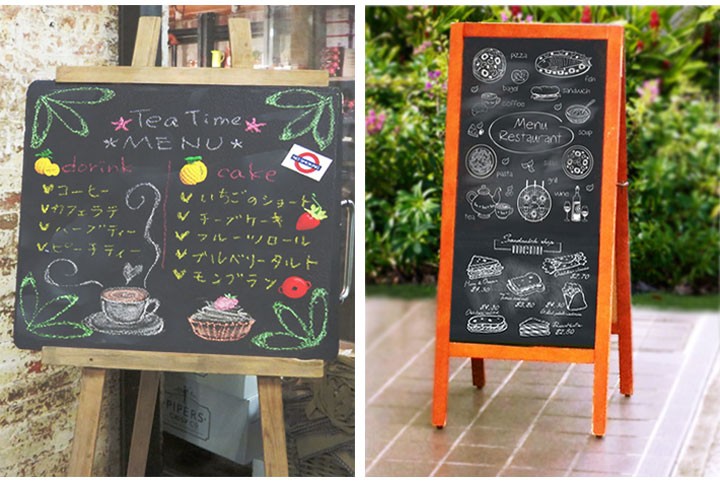 Tea Time
MENU
dorink
コーヒー
カフェラテ
ハーブティー
ピーチティー
cake
いちごのショート
チーズケーキ
フルーツロール
ブルベリータルト
モンブラン
PIPERS
CRISP CO
pizza
fish
bagel
sandwich
coffee
soup
Menu
Restaurant
pasta
grill
tea
wine
Sandwich shop
MENU
£4.50
£3.80
£2.50